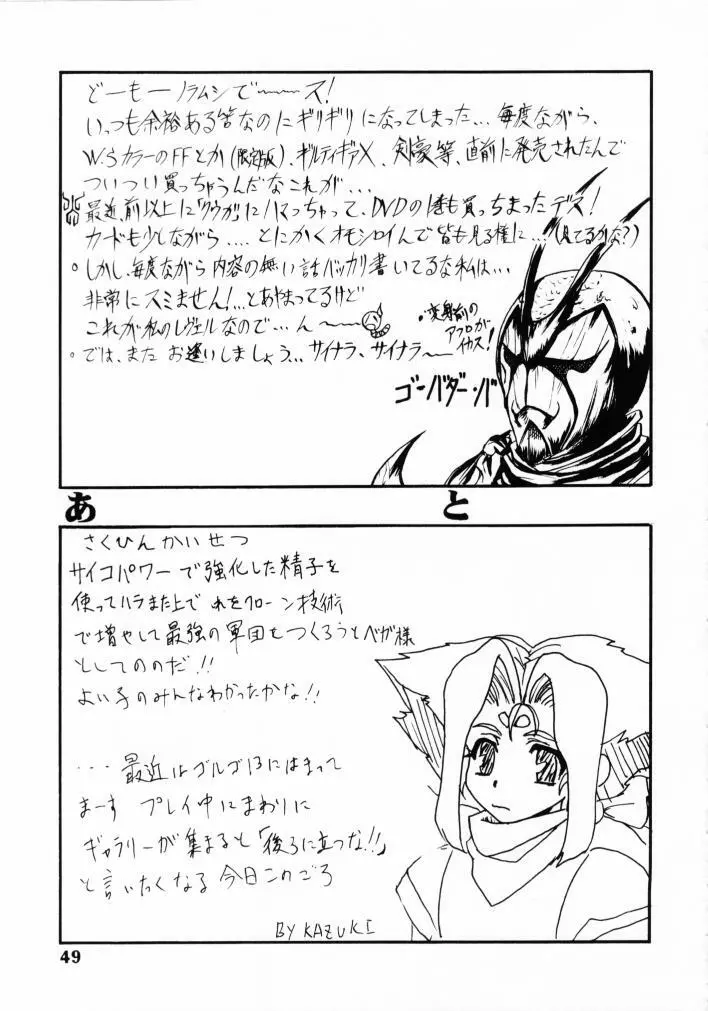 どーもー ノラムシでーース!
いっつも余裕ある筈なのにギリギリになってしまった… 毎度ながら、
W.SカラーのFFとか(限定版)、ギルティギアX、剣豪等、直前に発売されたんで
ついつい買っちゃうんだなこれが...
最近、前以上に「クウガ」にハマっちゃって、DVDの1巻も買っちまったデス!
カードも少しながら .... とにかくオモシロイんで皆も見る様に...(見てるかな?)
。しかし、毎度ながら内容の無い話バッカリ書いてるな私は...
非常にスミません!...とあやまってるけど
これが私のレヴェルなので...ん〜〜
。では、また お逢いしましょう... サイナラ、サイナラ〜
・変身前の
アフロが
イカス!
ゴ・バダー・バ
あと
さくひんかいせつ
サイコパワーで強化した精子を
使ってハラまた上で れをクローン技術
で増やして最強の軍団をつくろうとベガ様
としてのだ!!
よい子のみんなわかったかな!!
...最近はゴルゴ13にはまって
まーす プレイ中にまわりに
ギャラリーが集まると「後ろに立つな!!」
と言いたくなる今日このごろ
BY KAZUKI
49